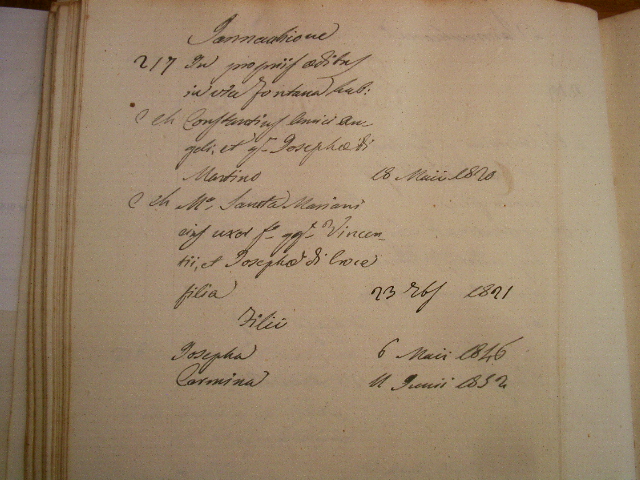 217 In propriis ædibus
in via Fontana hab:
C ch Constantinus Amici An-
geli, et qm Josephæ di
Martino 18 Maii 1820
C ch Ma Sancta Mariani
eius uxor fa qqm Vincen-
tii, et Josephæ di Croce
filia 23 Xbs 1821
Filii
Josepha 6 Maii 1846
Carmina 11 Junii 1852